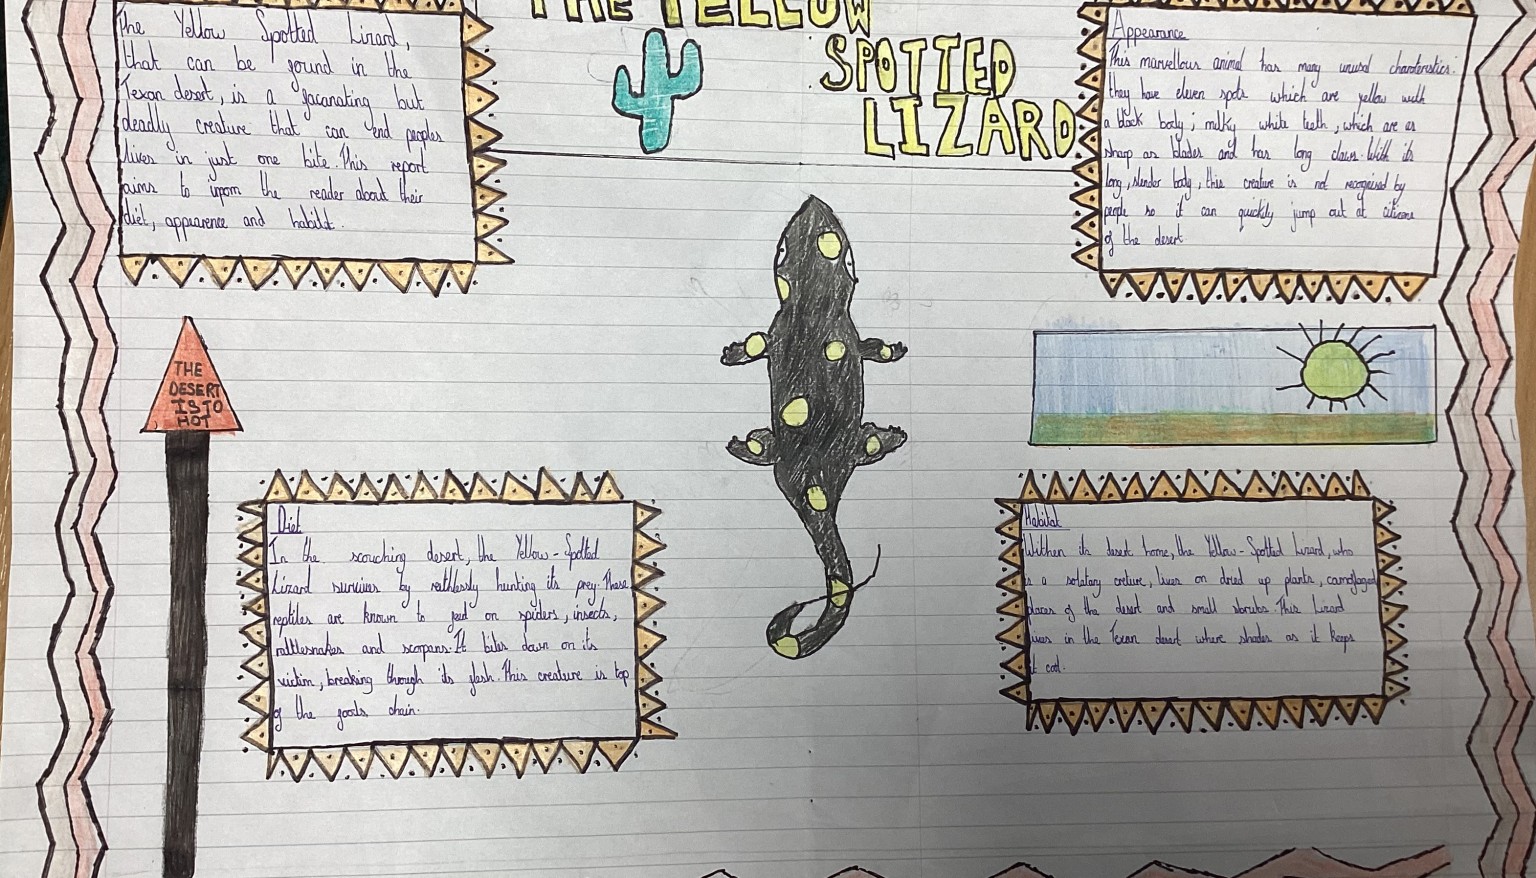 THE YELLOW
SPOTTED
LIZARD
The Yellow Spotted Lizard,
that can be found in the
Texan desert, is a facanating but
deadly creature that can end peoples
lives in just one bite. This report
aims to inporm the reader about their
diet, appearence and habitat.
Appearance
This marvellous animal has many unusal charateristics.
they have eleven spots which are yellow with
a black body; milky white teeth, which are as
sharp as blades and has long claws. With its
long, slender body, this creature is not recognised by
people so it can quickly jump out at citizens
of the desert
THE
DESERT
IS TO
HOT
Diet
In the scourching desert, the Yellow-Spotted
Lizard survives by ruthlessly hunting its prey. These
reptiles are known to feed on spiders, insects,
rattlesnakes and scorpans. It bites down on its
victim, breaking through its flesh. This creature is top
of the foods chain.
Habitat
Withen its desert home, the Yellow-Spotted Lizard, who
is a solatary creture, lives on dried up plants, camoflaged
places of the desert and small shrubs. This Lizard
lives in the Texan desert where shades as it keeps
it cool.